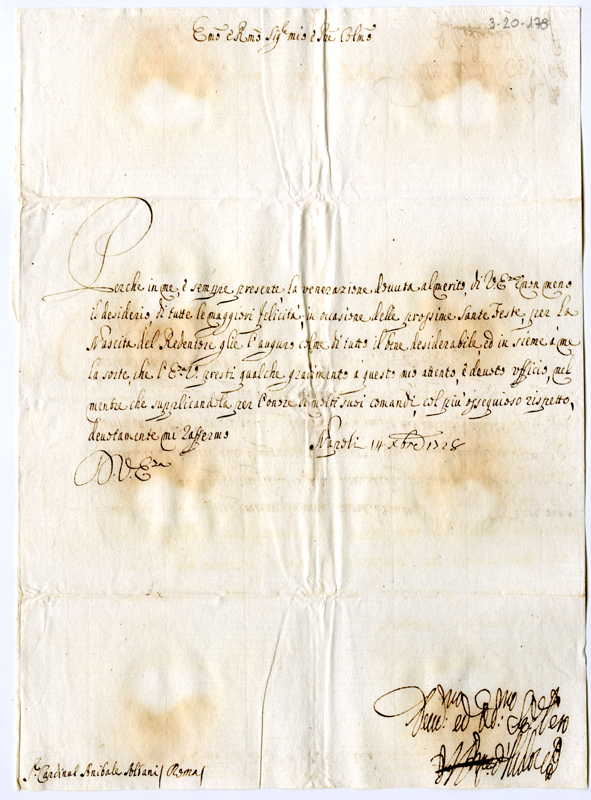 3-20-178
Emo e Rmo Sigre mio e Pne Colmo
Perche in me, è sempre presente, la venerazione dovuta al merito di V. Eza e non meno
il desiderio di tutte le maggiori felicità, in occasione delle prossime Sante Feste, per la
Nascita del Redentore glie l'auguro colme di tutto il bene desiderabile, ed in sieme à me
la sorte, che l'E. V. presti qualche gradimento à questo mio attento, è devoto ufficio, nel
mentre che supplicandola per l'onore di molti suoi comandi, col più ossequioso rispetto,
devotamente mi raffermo
Napoli 14 Xbre 1728
D. V. Eza
Devmo ed
Sr Cardinal Anibale Albani / Roma /